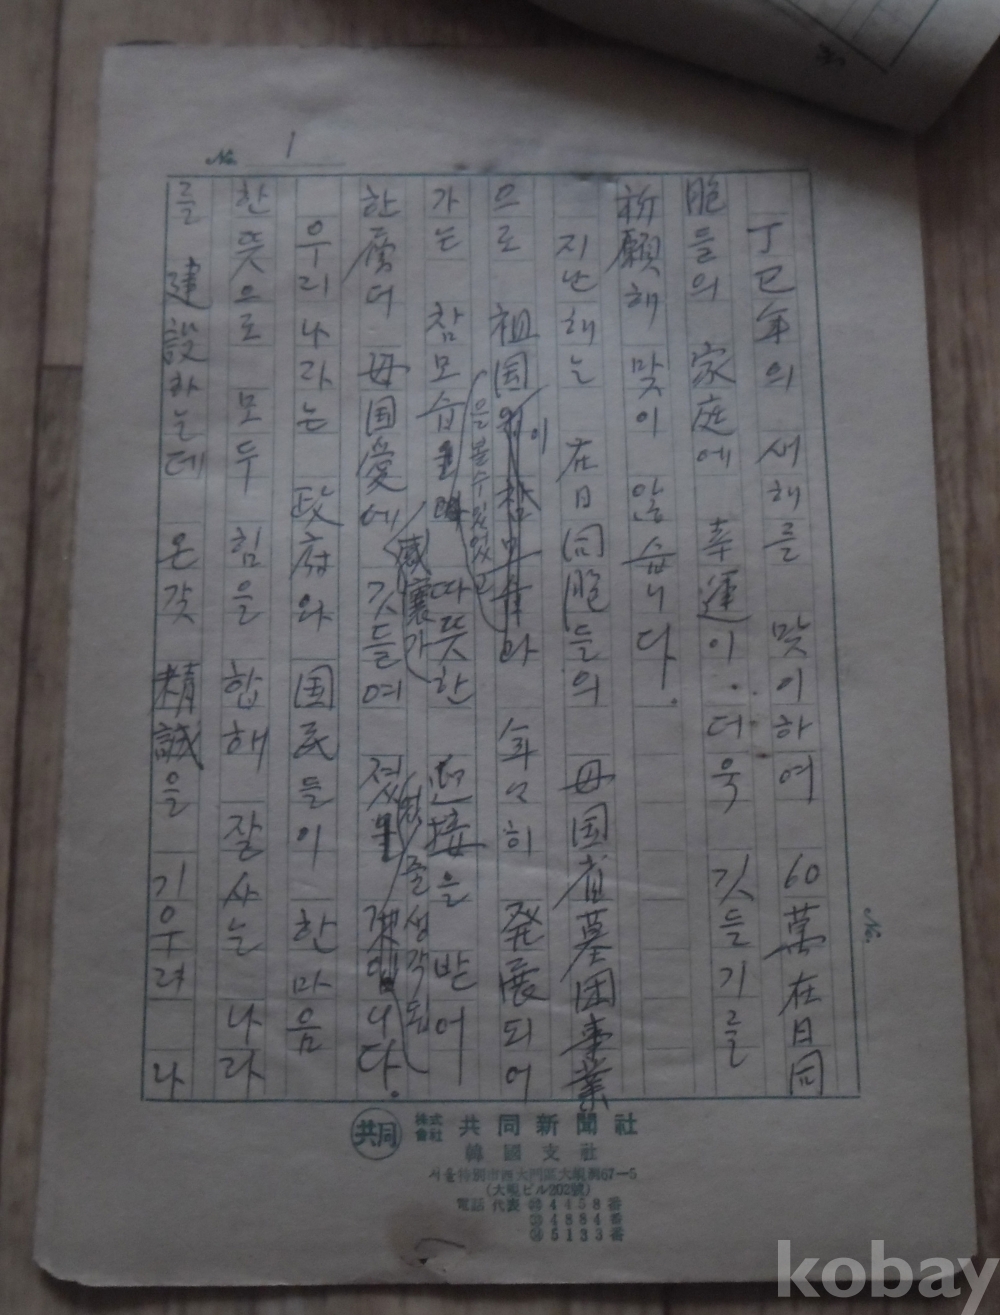 No. 1
丁巳年의 새해를 맞이하여 60萬在日同
胞들의 家庭에 幸運이 더욱 깃들기를
祈願해 맞이 않습니다.
지난해는 在日同胞들의 母国省墓団事業
으로 祖国이 年々히 発展되어
을 볼수있었고
가는 참모습 따뜻한 迎接을 받어
感懐가
한層더 母国愛에 깃들여 졌
줄 생각됩
니다.
우리나라는 政府와 国民들이 한마음
한뜻으로 모두 힘을 합해 잘사는 나라
를 建設하는데 온갖 精誠을 기우려 나
No.
共同 株式會社 共同新聞社
韓國支社
서울特別市西大門區大峴洞67-5
(大峴ビル202號)
電話 代表 4458番
4884番
5133番
kobay